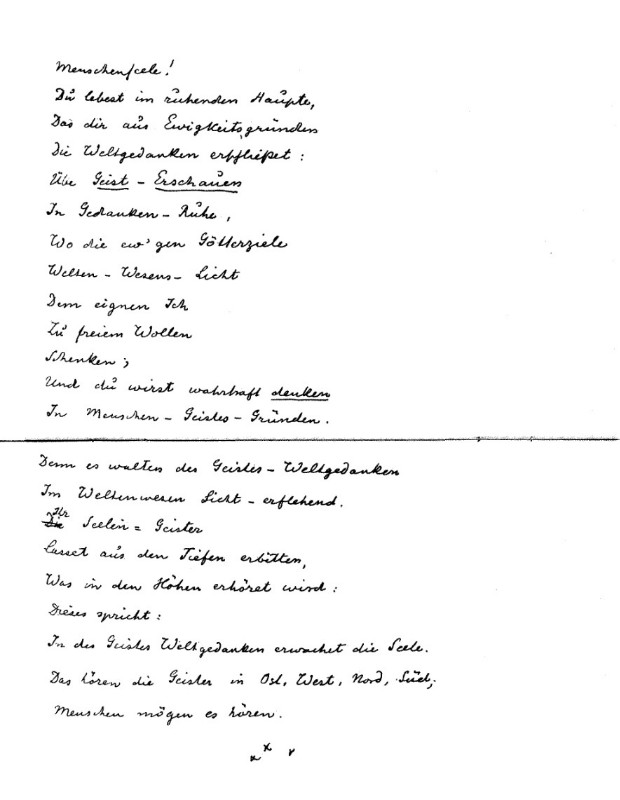 Menschenseele!
Du lebest im ruhenden Haupte,
Das dir aus Ewigkeitsgründen
Die Weltgedanken erschließet:
Übe Geist-Erschauen
In Gedanken-Ruhe,
Wo die ew'gen Götterziele
Welten-Wesens-Licht
Dem eignen Ich
Zu freiem Wollen
Schenken;
Und du wirst wahrhaft denken
In Menschen-Geistes-Gründen.
Denn es walten des Geistes-Weltgedanken
Im Weltenwesen Licht-erflehend.
Ihr
Die Seelen=Geister
Lasset aus den Tiefen erbitten,
Was in den Höhen erhöret wird:
Dieses spricht:
In des Geistes Weltgedanken erwachet die Seele.
Das hören die Geister in Ost, West, Nord, Süd;
Menschen mögen es hören.